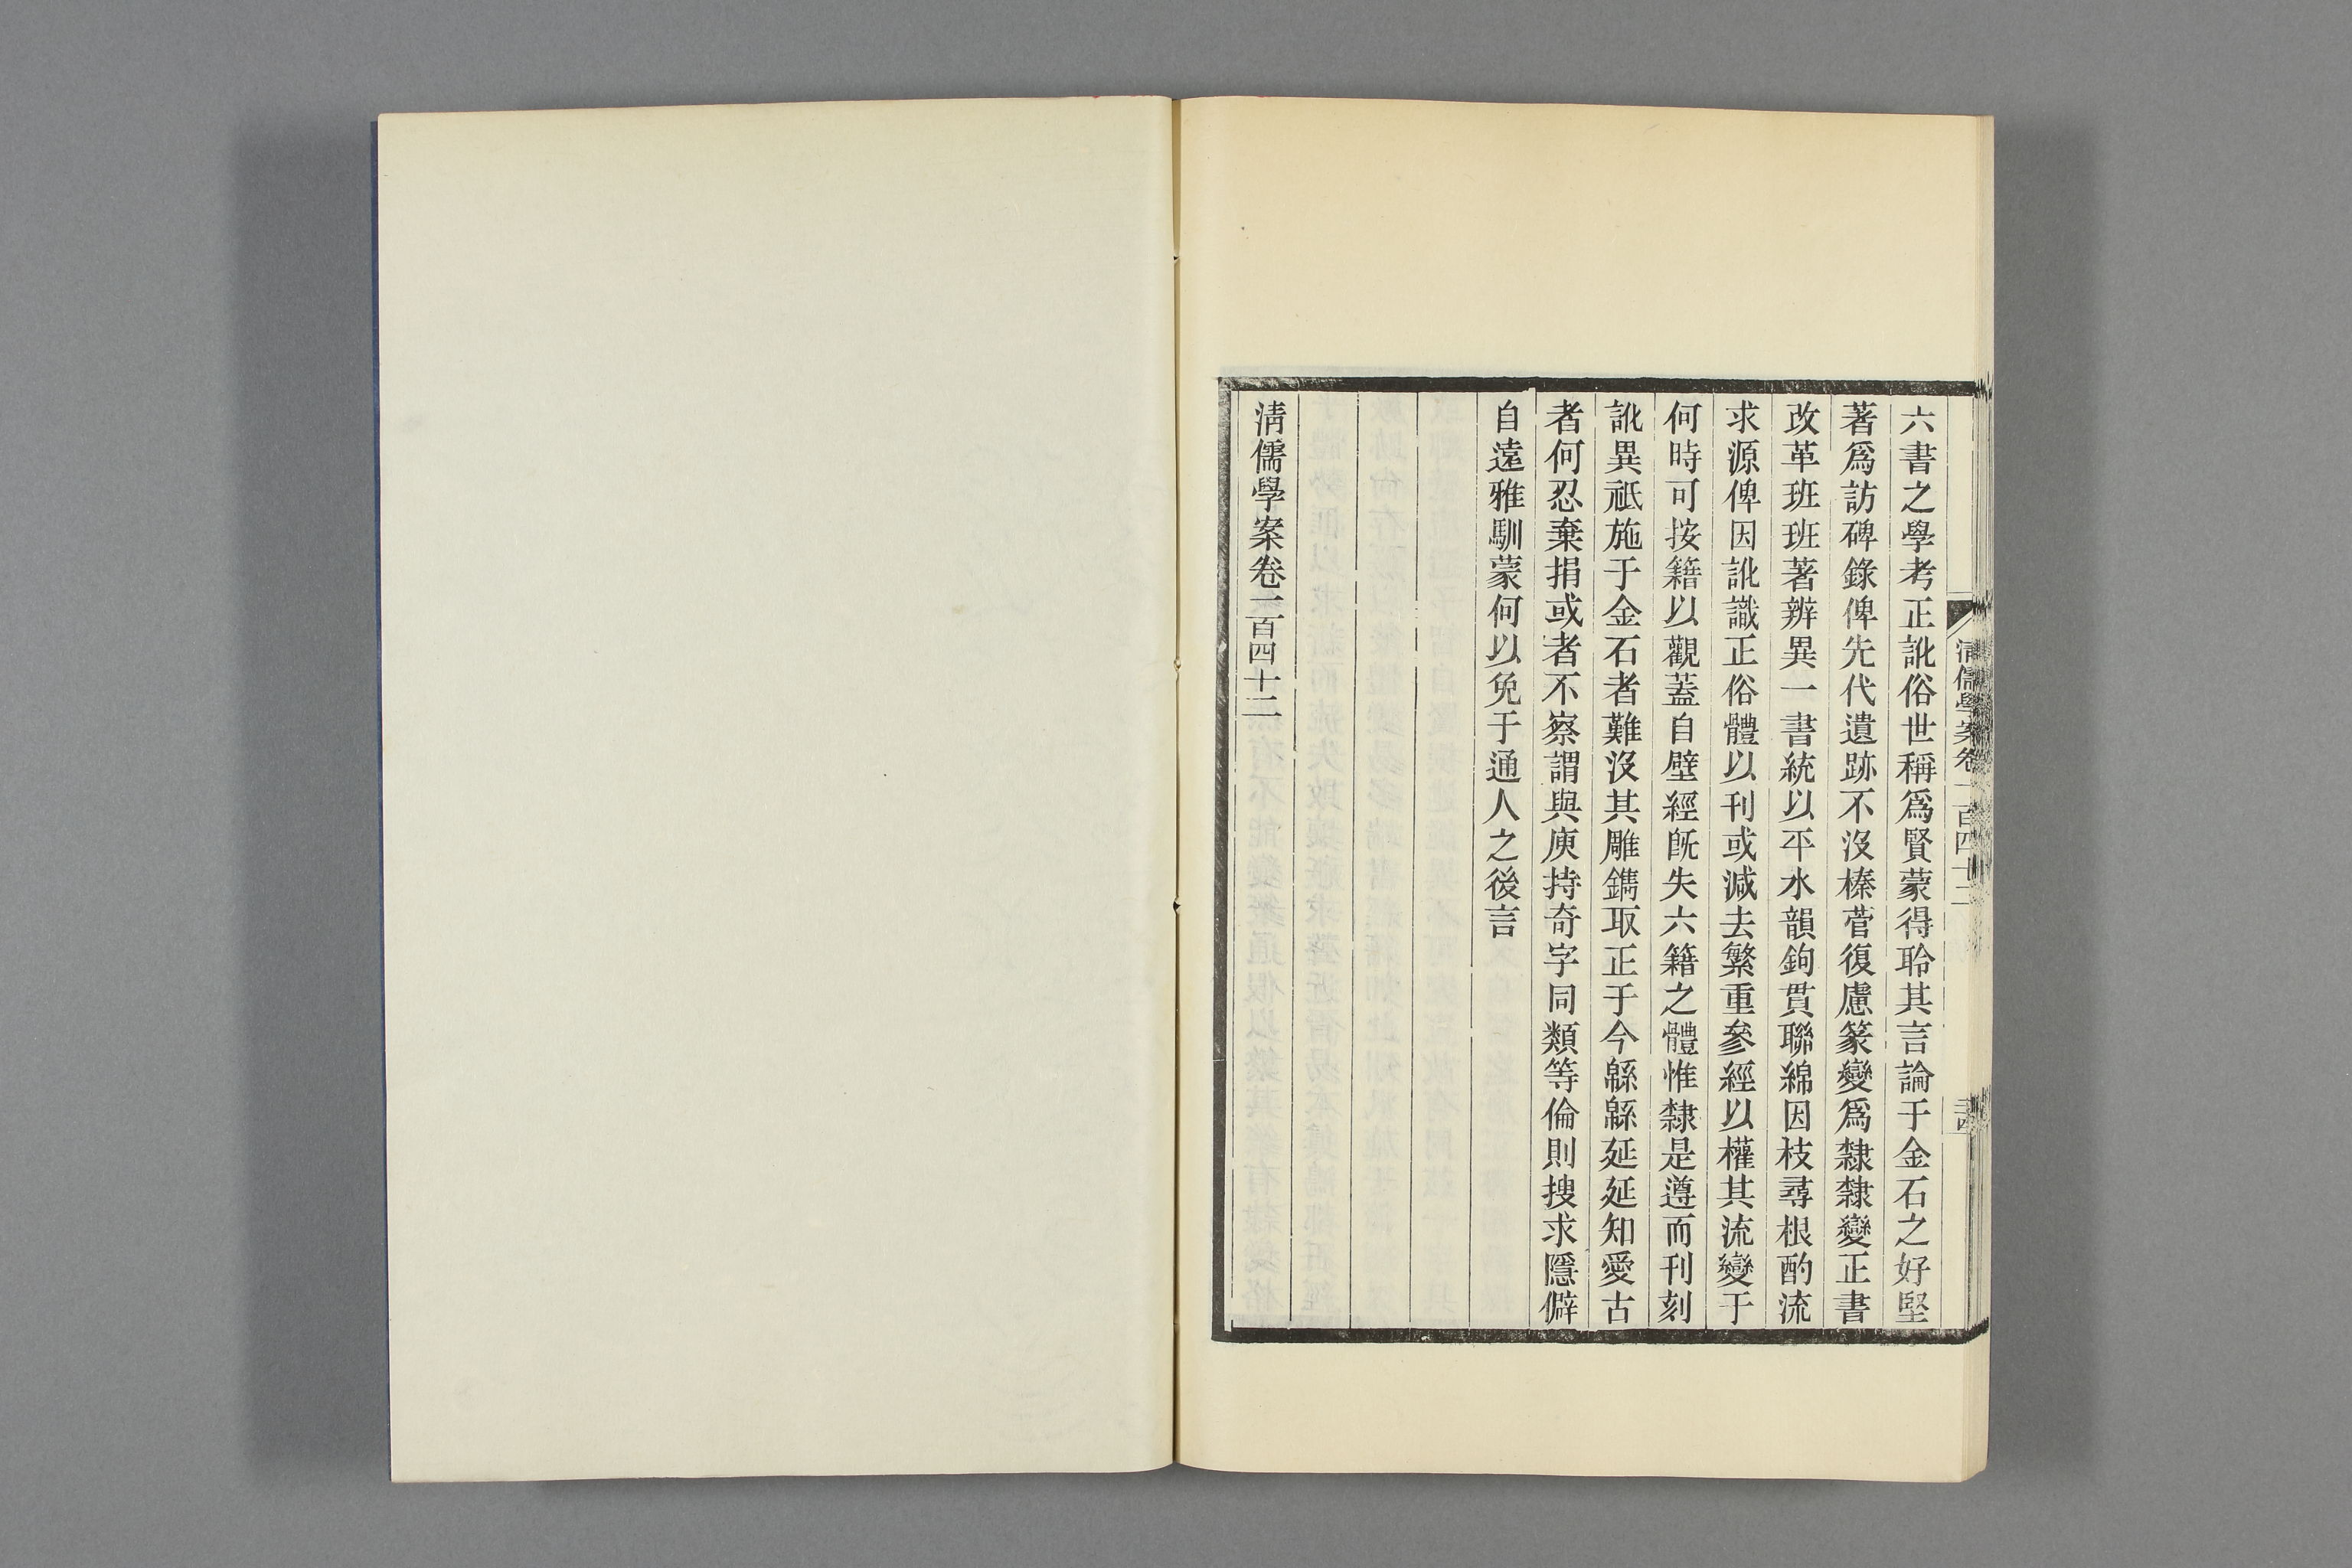 六書之學考正訛俗世稱爲賢蒙得聆其言論于金石之好堅
著爲訪碑錄俾先代遺跡不沒榛菅復慮篆變爲隸隸變正書
改革班班著辨異一書統以平水韻鉤貫聯綿因枝尋根酌流
求源俾因訛識正俗體以刊或減去繁重參經以權其流變于
何時可按籍以觀蓋自壁經旣失六籍之體惟隸是遵而刊刻
訛異祗施于金石者難沒其雕鐫取正于今緜緜延延知愛古
者何忍棄捐或者不察謂與庾持奇字同類等倫則搜求隱僻
自遠雅馴蒙何以免于通人之後言
清儒學案卷一百四十二
清儒學案卷一百四十二
三四